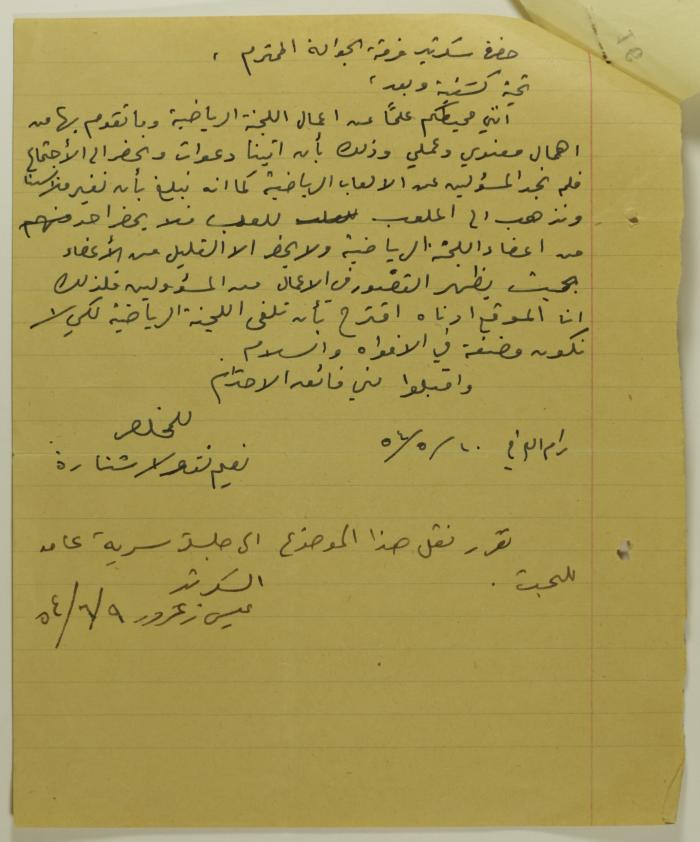 حضرة سكرتير فرقة الجوالة المحترم ،
تحية كشفية وبعد ،
انني محيطكم علمًا عن اعمال اللجنة الرياضية وما تقوم بها من
اهمال معنوي وعملي وذلك بأن اتينا دعوات ونحضر الى الأجتماع
فلم نجد المسؤلين عن الالعاب الرياضية كما انه نبلغ بأن نغير ملابسنا
ونذهب الى الملعب للعب فلا يحضر احد منهم
من اعضاء اللجنة الرياضية ولا يحضر الا القليل من الأعضاء
بحيث يظهر القصور في الاعمال من المسؤولين فلذلك
انا الموقع ادناه اقترح بأن تلغى اللجنة الرياضية لكي لا
نكون مضغة في الافواه والسلام .
واقبلوا مني فائق الاحترام
المخلص
رام الله في ٢٠/٥/٥٤
نعيم نقولا شتارة
تقرر نقل هذا الموضوع الى جلسة سرية عامة
للبحث .
السكرتير
عيسى زعرور ٩/٦/٥٤
16